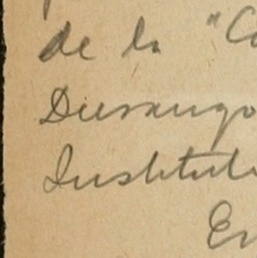 de la "C
Durango
Institut
En